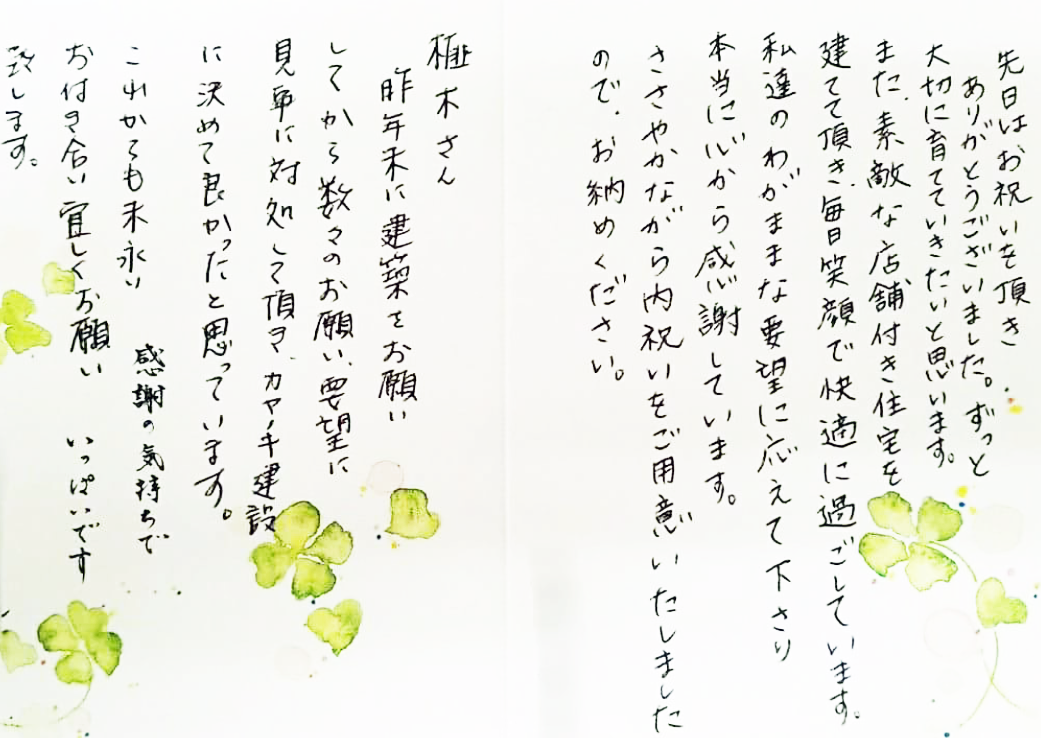 先日はお祝いを頂き
ありがとうございました。ずっと
大切に育てていきたいと思います。
また、素敵な店舗付き住宅を
建てて頂き、毎日笑顔で快適に過ごしています。
私達のわがままな要望に応えて下さり
本当に心から感謝しています。
ささやかながら内祝いをご用意いたしました
ので、お納めください。
榧木さん
昨年末に建築をお願い
してから数々のお願い、要望に
見事に対処して頂き、カヤノキ建設
に決めて良かったと思っています。
これからも末永い
お付き合い宜しくお願い
致します。
感謝の気持ちで
いっぱいです